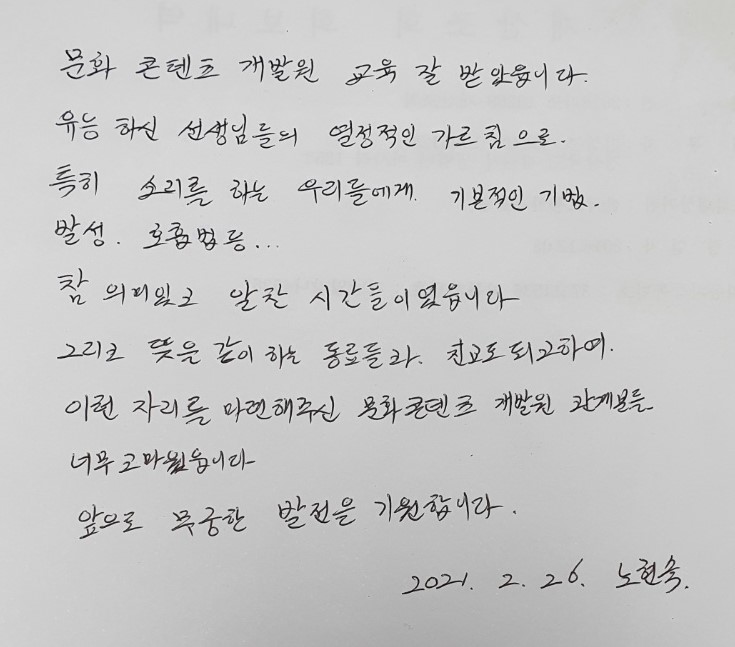 문화 콘텐츠 개발원 교육 잘 받았읍니다.
유능 하신 선생님들의 열정적인 가르침으로.
특히 소리를 하는 우리들에게. 기본적인 기법.
발성. 호흡법등...
참 의미있고 알찬 시간들이였읍니다
그리고 뜻을 같이 하는 동료들과. 친교도되고하여.
이런 자리를 마련해주신 문화콘텐츠 개발원 관계분들
너무 고마웠읍니다
앞으로 무궁한 발전을 기원합니다.
2021. 2. 26. 노현숙.